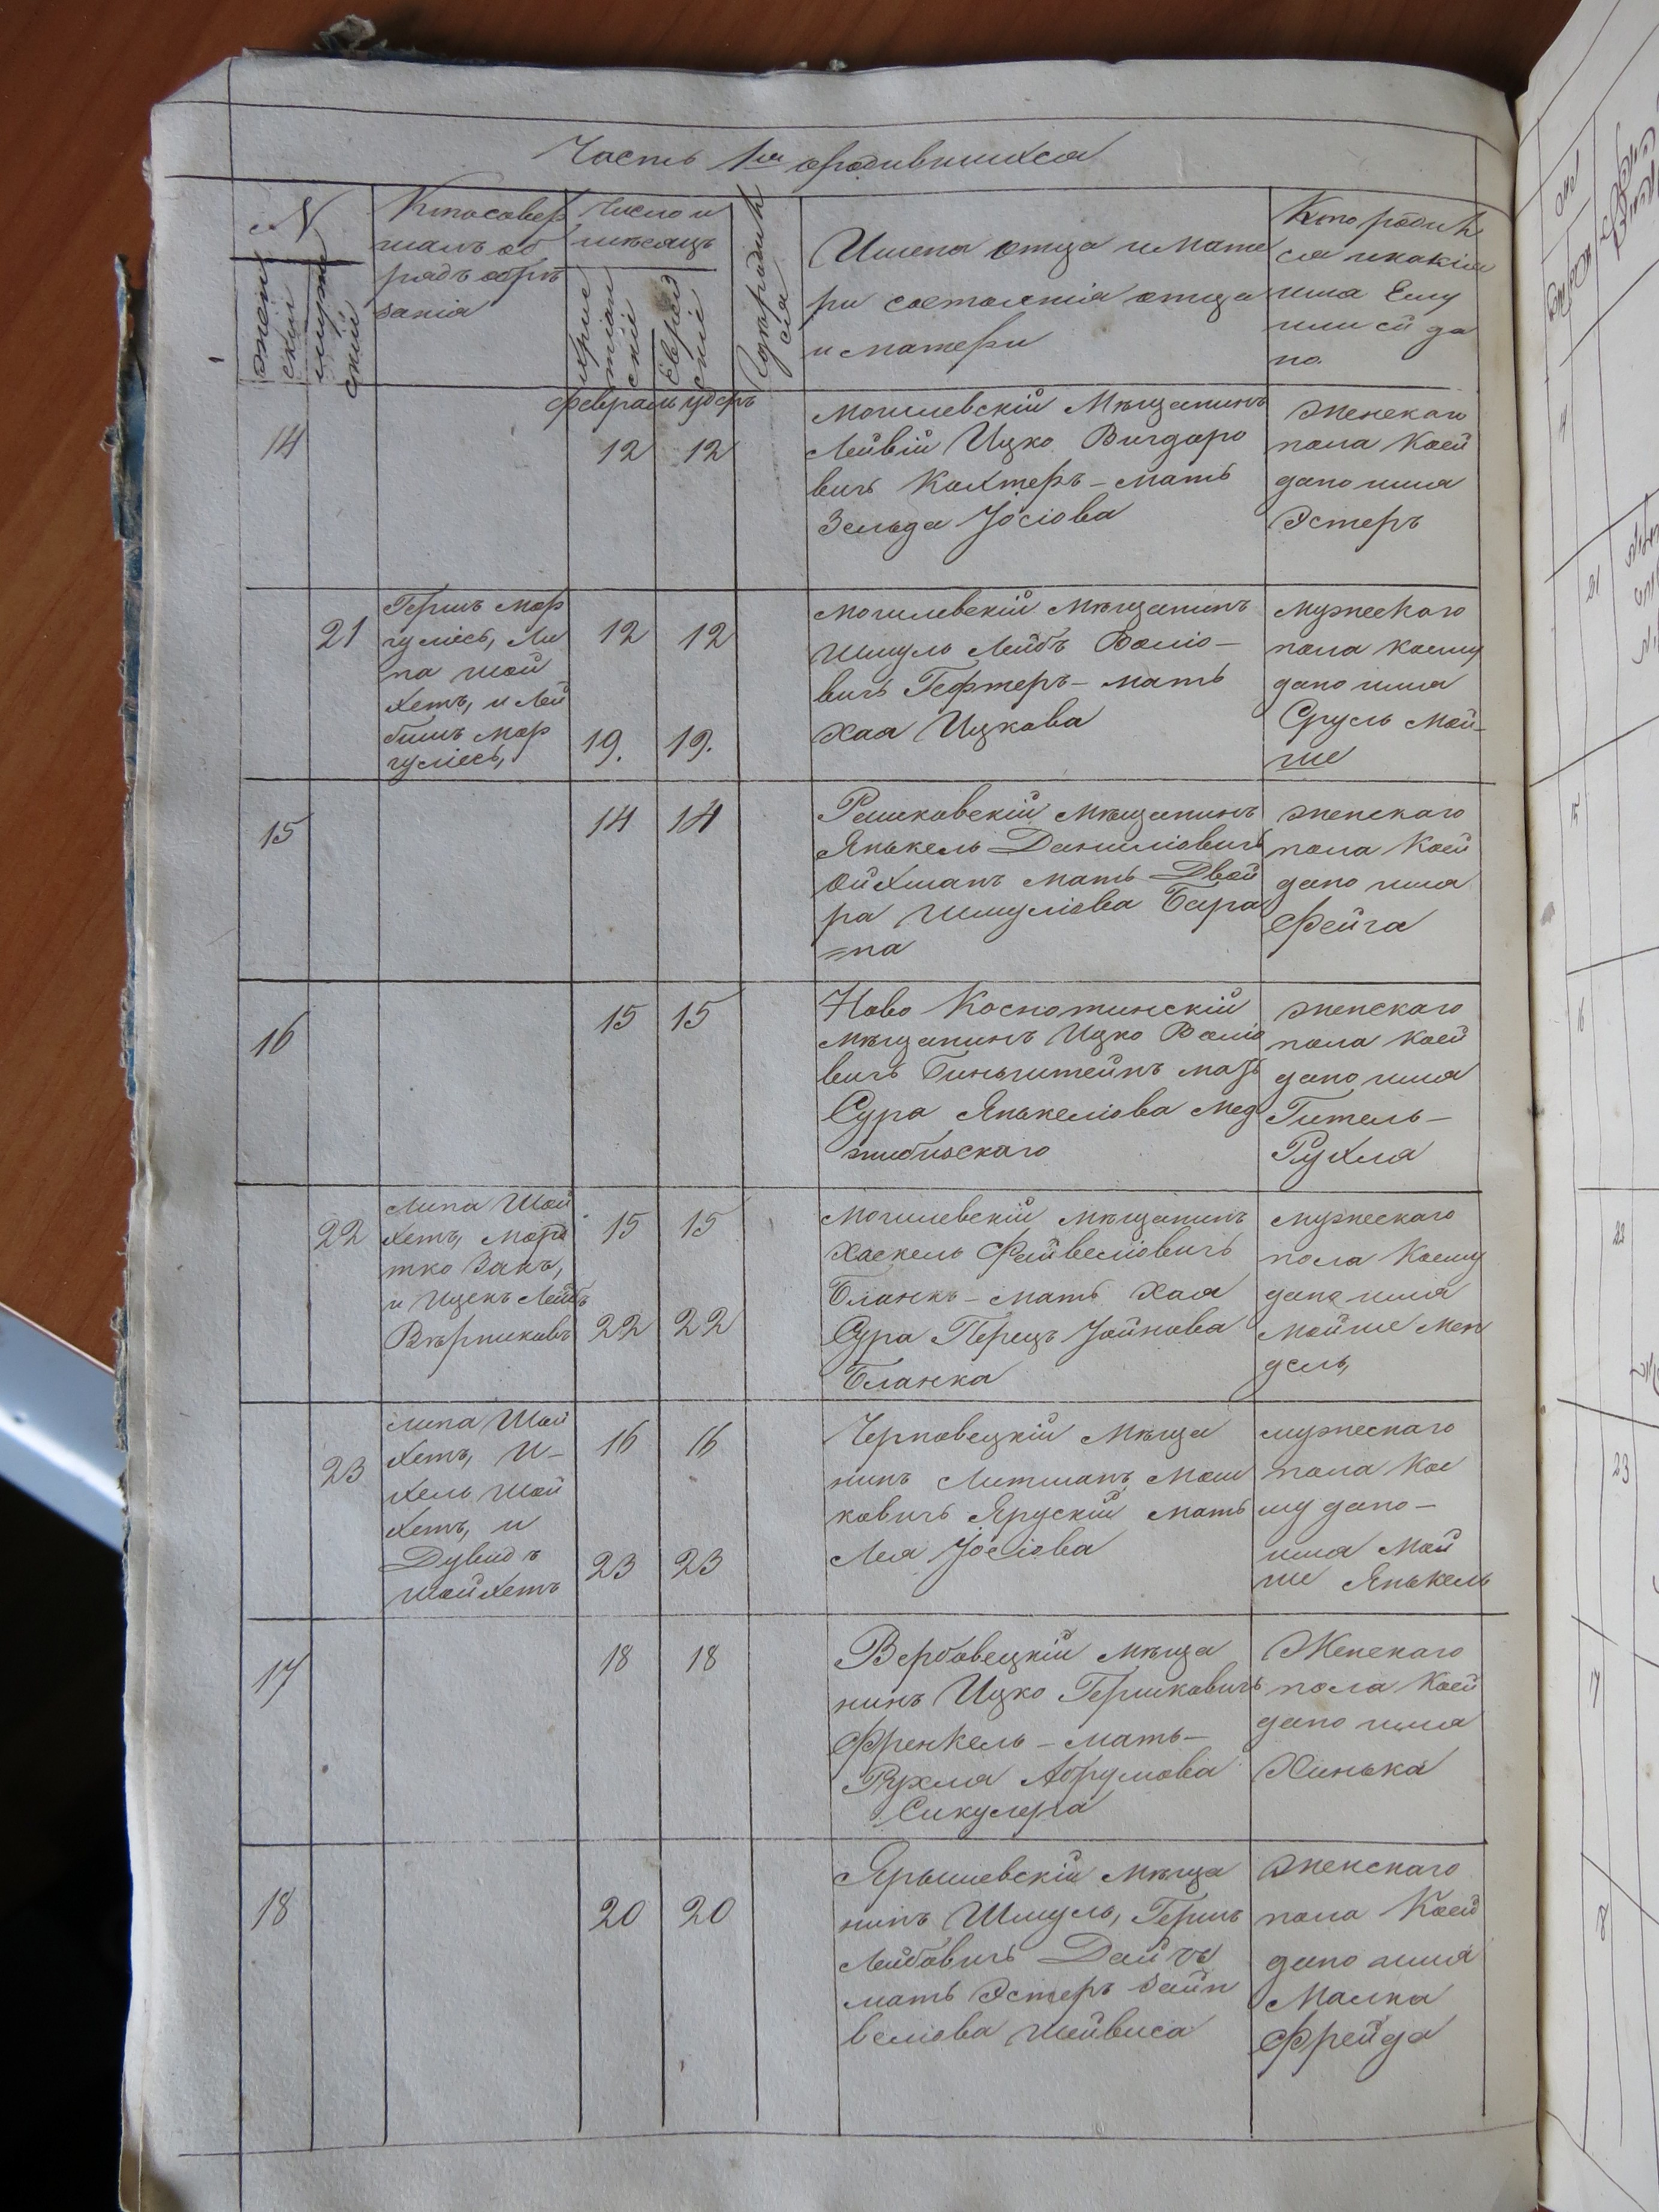 Часть 1я ородившихся
N
женскій
мужескій
Кто совер
шалъ об
рядъ обрѣ
занія
Число и
мѣсяцъ
христіанскій
Еврейскій
Гдѣ родился
Имена отца и мате
ри состоянія отца
и матери
Кто родил
ся и какія
имя Ему
или ей да
но
февраль удеръ
14
12 12
Могилевскій Мѣщанинъ
Лейвій Ицко Вигдоро
вичъ Кахтеръ – Мать
Зельда Іосіова
женскаго
пола Коей
дано имя
Эстеръ
21
Гершъ Мар
гуліесъ, Ли
па Шой
хетъ, и Лей
бишъ Мар
гуліесъ,
12 12
19. 19.
Могилевскій Мѣщанинъ
Шмуль Лейбъ Воліо–
вичъ Гефтеръ – мать
Хая Ицкова
мужескаго
пола коему
дано имя
Сруль Мой–
ше
15
14 14
Рашковскій Мѣщанинъ
Янькель Даниліовичъ
Ойхманъ мать Двой
ра Шмуліова Бара
=на
женскаго
пола Коей
дано имя
Фейга
16
15 15
Ново
Мѣщанинъ Ицко Воліо
вичъ Биньштейнъ мать
Сура Янькеліова Мед
жибижскаго
женскаго
пола коей
дано имя
Гитель–
Рухля
22
Липа Шой
хетъ, Морд
тко Закъ,
и Ицекъ Лейбъ
Вѣрниковъ
15 15
22 22
Могилевскій Мѣщанинъ
Хаскель Фейвеліовичъ
Бланкъ – мать Хая
Сура Перецъ Іойнова
Бланка
мужескаго
пола Коему
дано имя
Мойше Мен
дель,
23
Липа Шой
хетъ, И–
хель Шой
хетъ, и
Дувидъ
Шойхетъ
16 16
23 23
Черновецкій Мѣща
нинъ Литманъ Мош
ковичъ Ярускій Мать
Лея Іосіова
мужескаго
пола Кое
му дано–
имя Мой
ше Янькель
17
18 18
Вербовецкій Мѣща
нинъ Ицко Гершковичъ
Френкель – мать–
Рухля Абрумова
Сикулера
Женскаго
пола Коей
дано имя
Хинька
18
20 20
Ярышевскій Мѣща
нинъ Шмуль, Гершъ
Лейбовичъ Дайчъ
мать Эстеръ Зайн
веліова Шейвиса
женскаго
пола Коей
дано имя
Малка
Фрейда